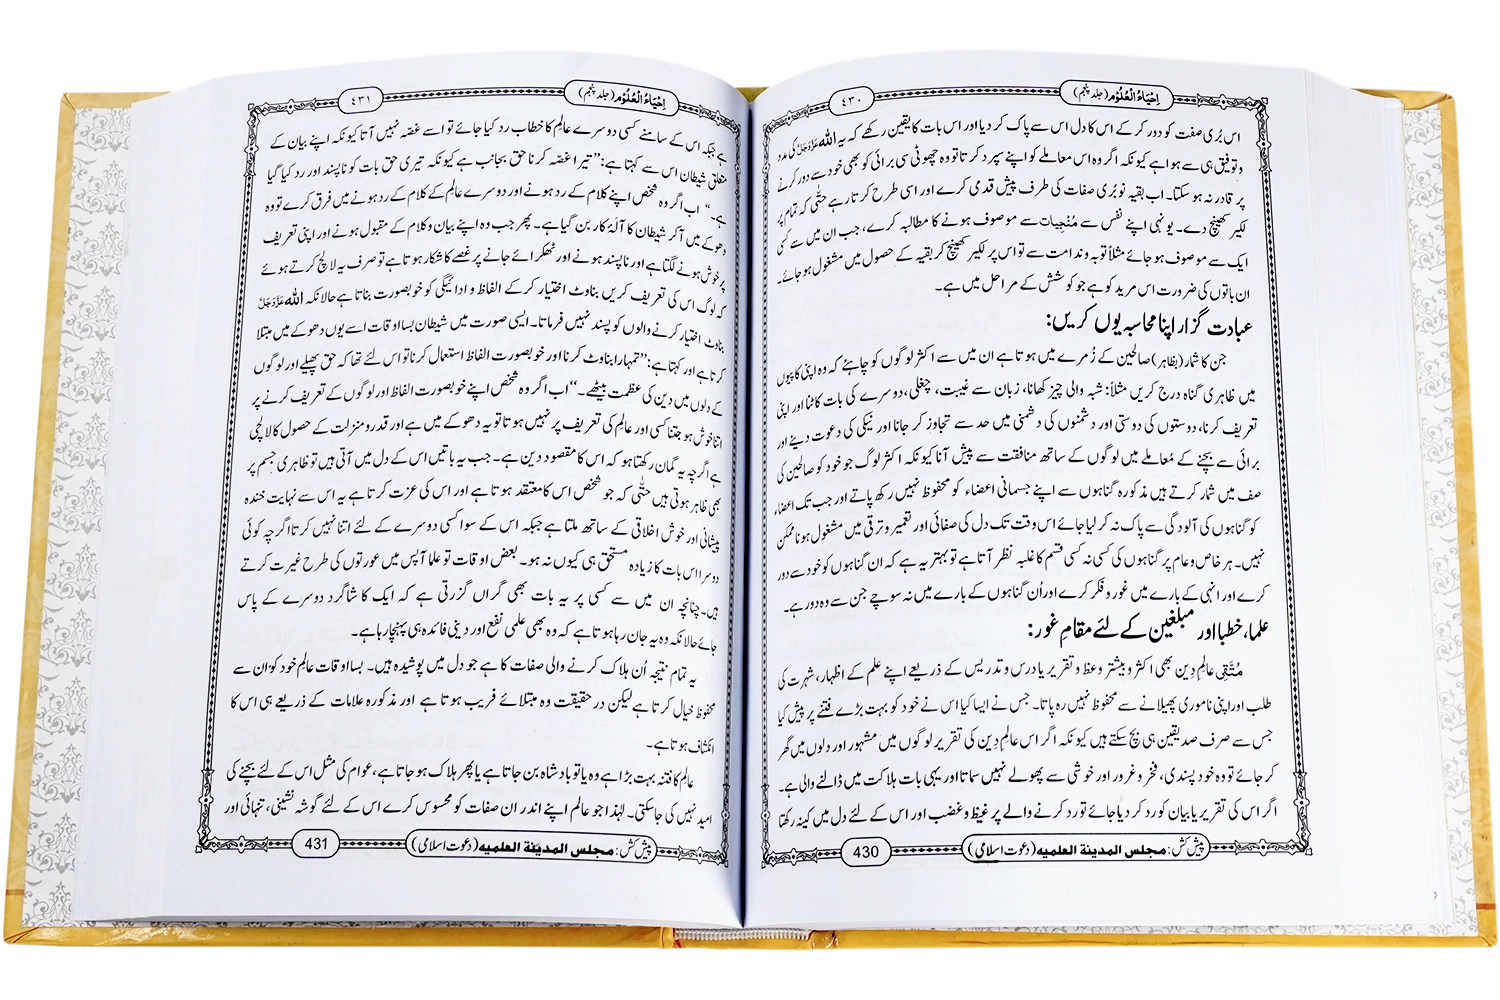 اِحْیَاءُ الْعُلُوْم (جلد پنجم)
٤٣٠
اس بُری صفت کو دور کر کے اس کا دل اس سے پاک کر دیا اور اس بات کا یقین رکھے کہ یہ اللہ عَزَّوَجَلَّ کی مدد
و توفیق ہی سے ہوا ہے کیونکہ اگر وہ اس معاملے کو اپنے سپرد کرتا تو وہ چھوٹی سی برائی کو بھی خود سے دور کرنے
پر قادر نہ ہو سکتا۔ اب بقیہ نو بُری صفات کی طرف پیش قدمی کرے اور اسی طرح کرتا رہے حتّٰی کہ تمام پر
لکیر کھینچ دے۔ یونہی اپنے نفس سے مُنْجِیات سے موصوف ہونے کا مطالبہ کرے، جب ان میں سے کسی
ایک سے موصوف ہو جائے مثلاً توبہ و ندامت سے تو اس پر لکیر کھینچ کر بقیہ کے حصول میں مشغول ہو جائے۔
ان باتوں کی ضرورت اس مرید کو ہے جو کوشش کے مراحل میں ہے۔
عبادت گزار اپنا محاسبہ یوں کریں:
جن کا شمار (بظاہر) صالحین کے زُمرے میں ہوتا ہے ان میں سے اکثر لوگوں کو چاہئے کہ وہ اپنی کاپیوں
میں ظاہری گناہ درج کریں مثلاً: شبہ والی چیز کھانا، زبان سے غیبت، چغلی، دوسرے کی بات کاٹنا اور اپنی
تعریف کرنا، دوستوں کی دوستی اور دشمنوں کی دشمنی میں حد سے تجاوز کر جانا اور نیکی کی دعوت دینے اور
برائی سے بچنے کے مُعاملے میں لوگوں کے ساتھ منافقت سے پیش آنا کیونکہ اکثر لوگ جو خود کو صالحین کی
صف میں شمار کرتے ہیں مذکورہ گناہوں سے اپنے جسمانی اعضاء کو محفوظ نہیں رکھ پاتے اور جب تک اعضاء
کو گناہوں کی آلودگی سے پاک نہ کر لیا جائے اس وقت تک دل کی صفائی اور تعمیر و ترقی میں مشغول ہونا ممکن
نہیں۔ ہر خاص و عام پر گناہوں کی کسی نہ کسی قسم کا غلبہ نظر آتا ہے تو بہتر یہ ہے کہ ان گناہوں کو خود سے دور
کرے اور انہی کے بارے میں غور و فکر کرے اور اُن گناہوں کے بارے میں نہ سوچے جن سے وہ دور ہے۔
علما، خطبا اور مبلغین کے لئے مقامِ غور:
مُتَّقِی عالِمِ دِین بھی اکثر و بیشتر وعظ و تقریر یا درس و تدریس کے ذریعے اپنے علم کے اظہار، شہرت کی
طلب اور اپنی ناموری پھیلانے سے محفوظ نہیں رہ پاتا۔ جس نے ایسا کیا اس نے خود کو بہت بڑے فتنے پر پیش کیا
جس سے صرف صدیقین ہی بچ سکتے ہیں کیونکہ اگر اس عالِمِ دِین کی تقریر لوگوں میں مشہور اور دلوں میں گھر
کر جائے تو وہ خود پسندی، فخر و غرور اور خوشی سے پھولے نہیں سماتا اور یہی بات ہلاکت میں ڈالنے والی ہے۔
اگر اس کی تقریر یا بیان کو رد کر دیا جائے تو رد کرنے والے پر غیظ و غضب اور اس کے لئے دل میں کینہ رکھتا
پیش کش: مجلس المدینۃ العلمیہ (دعوتِ اسلامی)
430
اِحْیَاءُ الْعُلُوْم (جلد پنجم)
٤٣١
ہے جبکہ اس کے سامنے کسی دوسرے عالِم کا خطاب رد کیا جائے تو اسے غصّہ نہیں آتا کیونکہ اپنے بیان کے
متعلق شیطان اس سے کہتا ہے: ”تیرا غصّہ کرنا حق بجانب ہے کیونکہ تیری حق بات کو ناپسند اور رد کیا گیا
ہے۔“ اب اگر وہ شخص اپنے کلام کے رد ہونے اور دوسرے عالِم کے کلام کے رد ہونے میں فرق کرے تو وہ
دھوکے میں آ کر شیطان کا آلۂ کار بن گیا ہے۔ پھر جب وہ اپنے بیان و کلام کے مقبول ہونے اور اپنی تعریف
پر خوش ہونے لگتا ہے اور ناپسند ہونے اور ٹھکرائے جانے پر غصے کا شکار ہوتا ہے تو صرف یہ لالچ کرتے ہوئے
کہ لوگ اس کی تعریف کریں بناوٹ اختیار کر کے الفاظ و ادائیگی کو خوبصورت بناتا ہے حالانکہ اللہ عَزَّوَجَلَّ
بناوٹ اختیار کرنے والوں کو پسند نہیں فرماتا۔ ایسی صورت میں شیطان بسا اوقات اسے یوں دھوکے میں مبتلا
کرتا ہے اور کہتا ہے: ”تمہارا بناوٹ کرنا اور خوبصورت الفاظ استعمال کرنا تو اس لئے تھا کہ حق پھیلے اور لوگوں
کے دلوں میں دین کی عظمت بیٹھے۔“ اب اگر وہ شخص اپنے خوبصورت الفاظ اور لوگوں کے تعریف کرنے پر
اتنا خوش ہو جتنا کسی اور عالِم کی تعریف پر نہیں ہوتا تو یہ دھوکے میں ہے اور قدر و منزلت کے حصول کا لالچی
ہے اگرچہ یہ گمان رکھتا ہو کہ اس کا مقصود دین ہے۔ جب یہ باتیں اس کے دل میں آتی ہیں تو ظاہری جِسْم پر
بھی ظاہر ہوتی ہیں حتّٰی کہ جو شخص اس کا معتقد ہوتا ہے اور اس کی عزت کرتا ہے یہ اس سے نہایت خندہ
پیشانی اور خوش اخلاقی کے ساتھ ملتا ہے جبکہ اس کے سوا کسی دوسرے کے لئے اتنا نہیں کرتا اگرچہ کوئی
دوسرا اس بات کا زیادہ مستحق ہی کیوں نہ ہو۔ بعض اوقات تو علما آپس میں عورتوں کی طرح غیرت کرتے
ہیں۔ چنانچہ ان میں سے کسی پر یہ بات بھی گراں گزرتی ہے کہ ایک کا شاگرد دوسرے کے پاس
جائے حالانکہ وہ یہ جان رہا ہوتا ہے کہ وہ بھی علمی نفع اور دینی فائدہ ہی پہنچا رہا ہے۔
یہ تمام نتیجہ اُن ہلاک کرنے والی صفات کا ہے جو دل میں پوشیدہ ہیں۔ بسا اوقات عالِم خود کو ان سے
محفوظ خیال کرتا ہے لیکن در حقیقت وہ مبتلائے فریب ہوتا ہے اور مذکورہ علامات کے ذریعے ہی اس کا
انکشاف ہوتا ہے۔
عالِم کا فتنہ بہت بڑا ہے وہ یا تو بادشاہ بن جاتا ہے یا پھر ہلاک ہو جاتا ہے، عوام کی مثل اس کے لئے بچنے کی
امید نہیں کی جاسکتی۔ لہٰذا جو عالم اپنے اندر ان صفات کو محسوس کرے اس کے لئے گوشہ نشینی، تنہائی اور
پیش کش: مجلس المدینۃ العلمیہ (دعوتِ اسلامی)
431